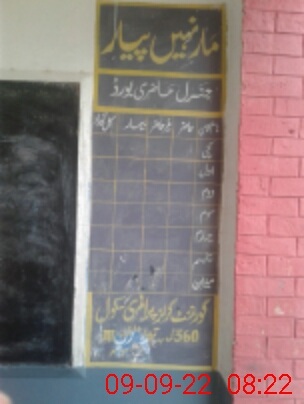 مار نہیں پیار
جنرل حاضری بورڈ
نام جماعت حاضر غیر حاضر بیمار کل تعداد
کچی
اول
دوم
سوم
چہارم
پنجم
میزان
گورنمنٹ گرلز پرائمری سکول
560
09-09-22 08:22